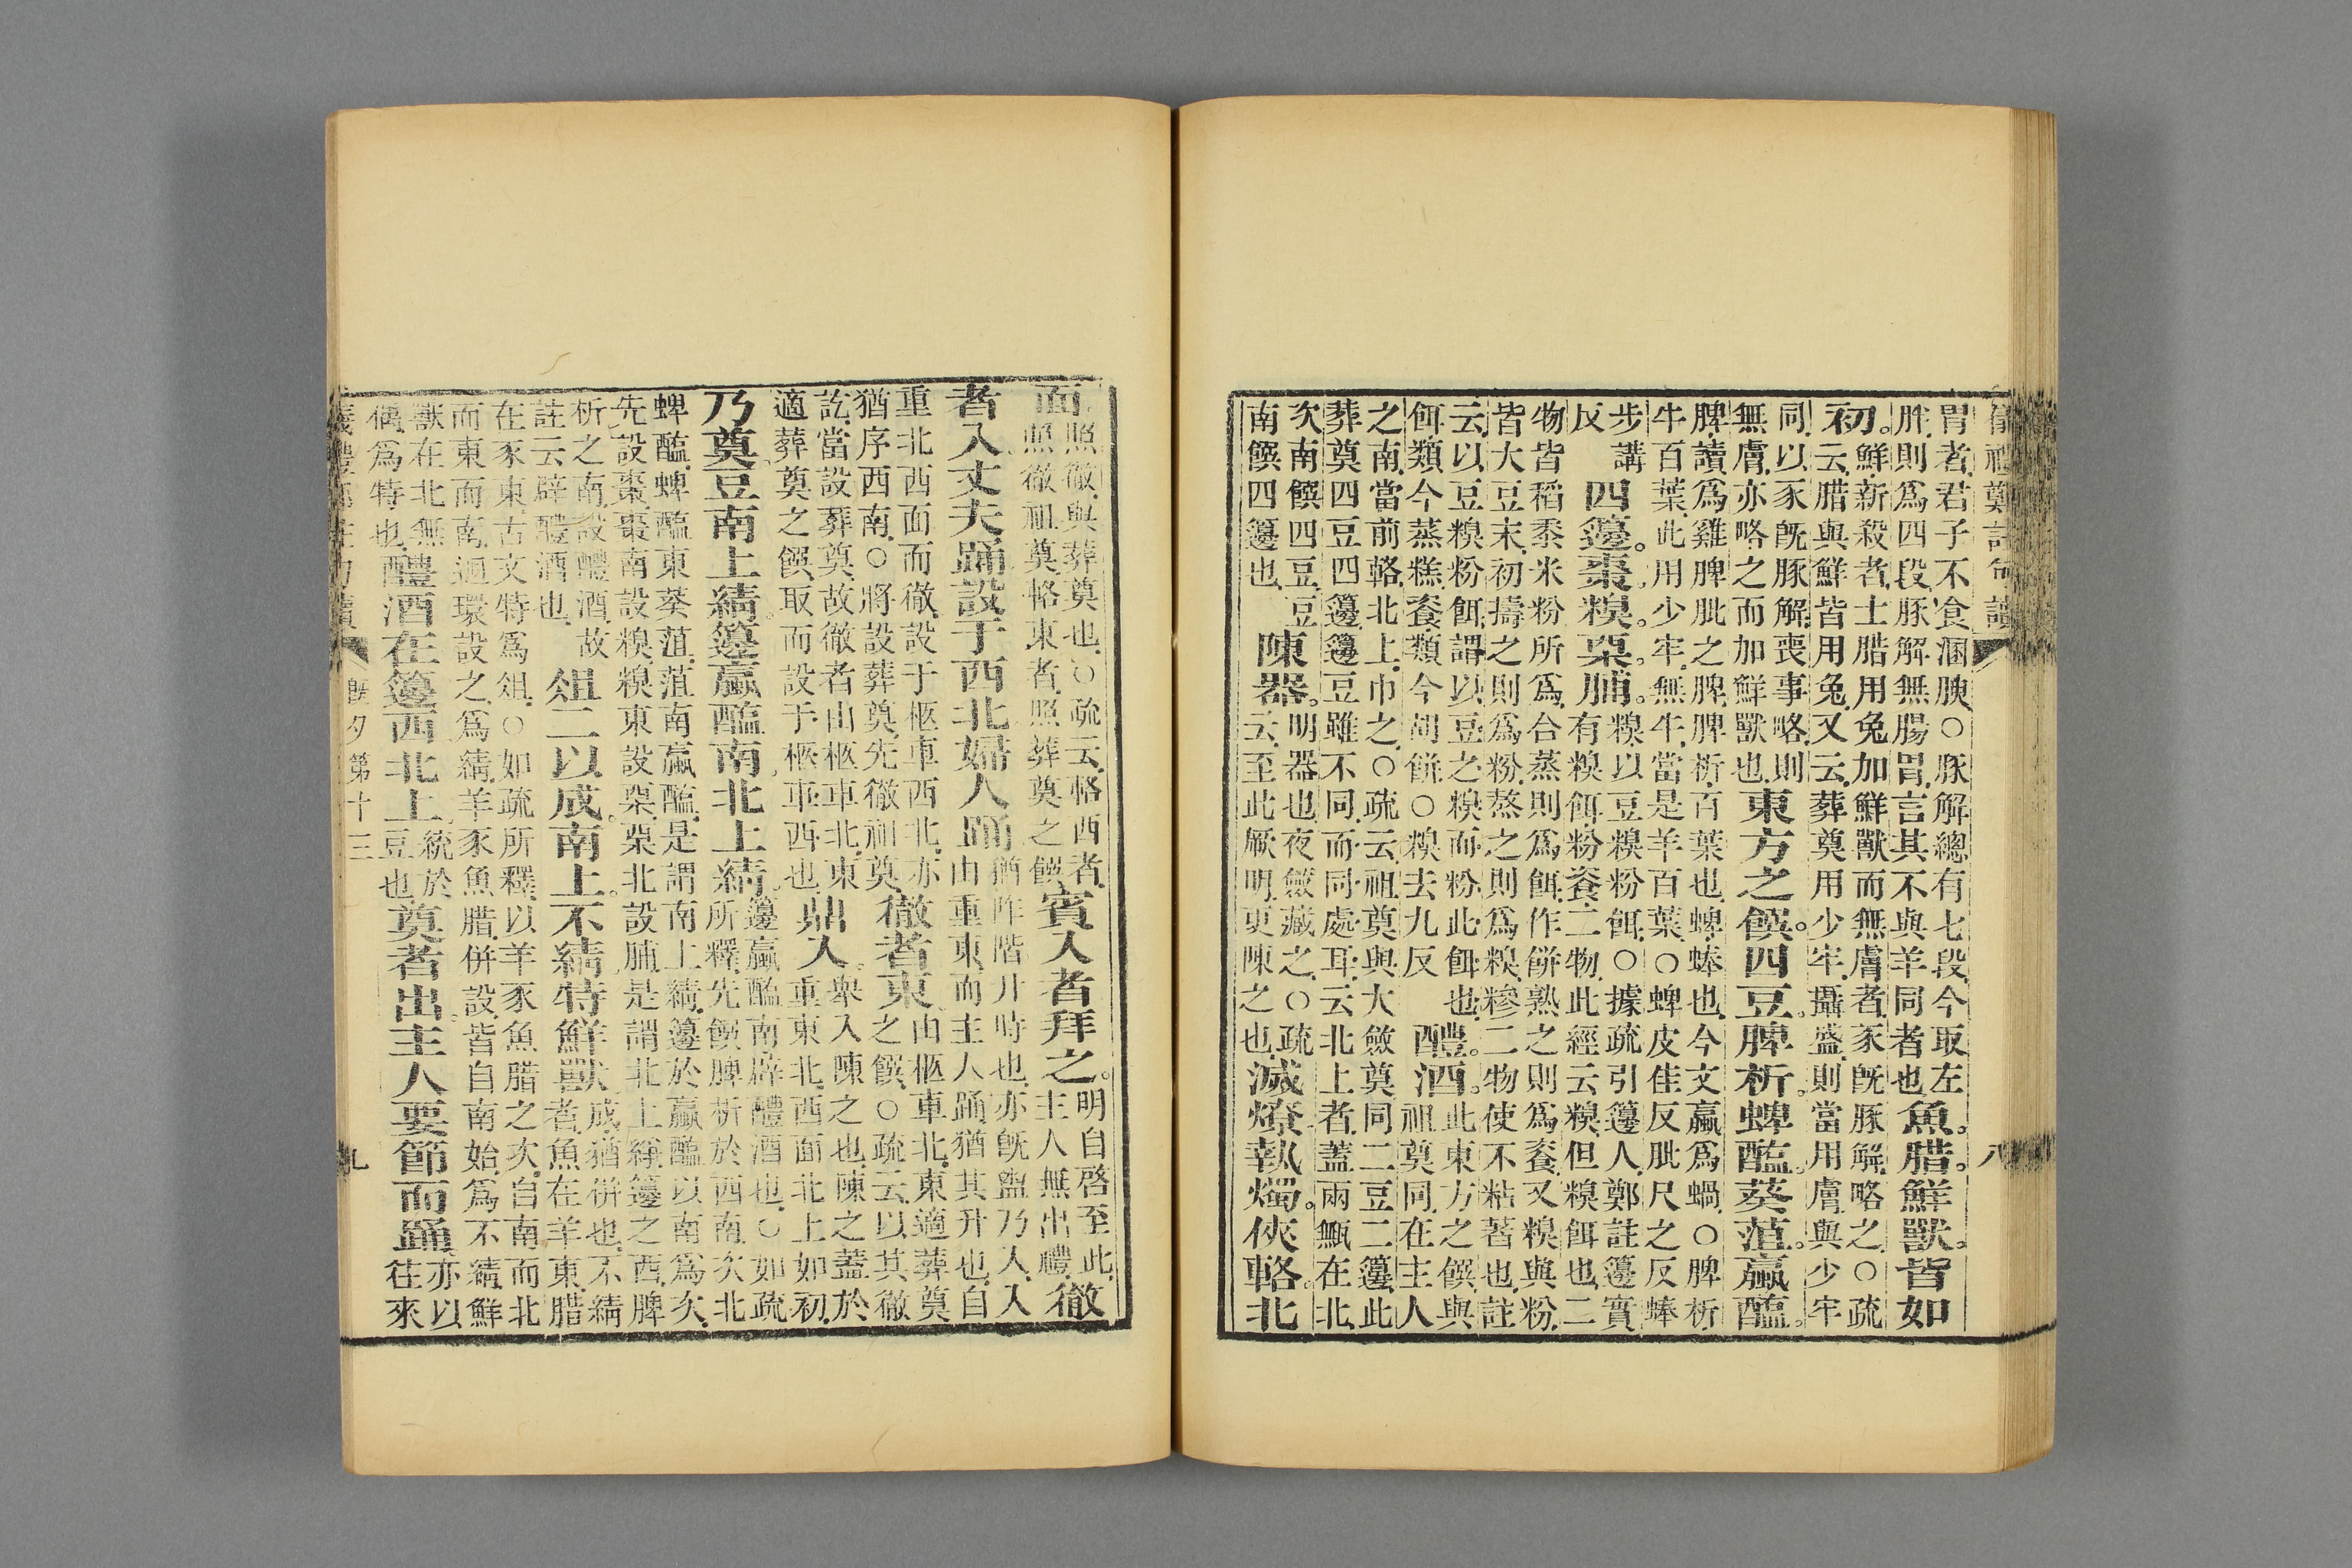 儀禮鄭註句讀 八
胃者君子不食溷腴○豚解總有七段今取左
胖則爲四段豚解無腸胃言其不與羊同者也
魚。腊。鮮獸。皆如
初。
鮮新殺者士腊用兔加鮮獸而無膚者豕旣豚解略之○疏
云腊與鮮皆用兔又云葬奠用少牢攝盛則當用膚與少牢
同以豕旣豚解喪事略則
無膚亦略之而加鮮獸也
東方之饌。四豆。脾析。蜱醢。葵菹。蠃醢。
脾讀爲雞脾肶之脾脾析百葉也蜱蜯也今文蠃爲蝸○脾析
牛百葉此用少牢無牛當是羊百葉○蜱皮佳反肶尺之反蜯
步講
反
四籩。棗。糗。栗。脯。
糗以豆糗粉餌○據疏引籩人鄭註籩實
有糗餌粉餈二物此經云糗但糗餌也二
物皆稻黍米粉所爲合蒸則爲餌作餅熟之則爲餈又糗與粉
皆大豆末初擣之則爲粉熬之則爲糗糝二物使不粘著也註
云以豆糗粉餌謂以豆之糗而粉此餌也
餌類今蒸糕餈類今胡餅○糗去九反
醴。酒。
此東方之饌與
祖奠同在主人
之南當前輅北上巾之○疏云祖奠與大斂奠同二豆二籩此
葬奠四豆四籩籩豆雖不同而同處耳云北上者蓋兩甒在北
次南饌四豆豆
南饌四籩也
陳器。
明器也夜斂藏之○疏
云至此厥明更陳之也
滅燎。執燭。俠輅。北
面。
照徹與葬奠也○疏云輅西者
照徹祖奠輅東者照葬奠之饌
賓入者拜之。
明自啓至此
主人無出禮
徹
者入丈夫踊設于西北婦人踊
猶阼階升時也亦旣盥乃入入
由重東而主人踊猶其升也自
重北西面而徹設于柩車西北亦
猶序西南○將設葬奠先徹祖奠
徹者東
由柩車北東適葬奠
之饌○疏云以其徹
訖當設葬奠故徹者由柩車北東
適葬奠之饌取而設于柩車西也
鼎入
舉入陳之也陳之蓋於
重東北西面北上如初
乃奠豆南上綪。籩蠃醢南北上綪。
籩蠃醢南辟醴酒也○如疏
所釋先饌脾析於西南次北
蜱醢蜱醢東葵菹菹南蠃醢是謂南上綪籩於蠃醢以南爲次
先設棗棗南設糗糗東設栗栗北設脯是謂北上綪籩之西脾
析之南設醴酒故
註云辟醴酒也
俎二以成。南上。不綪特鮮獸
成猶併也不綪
者魚在羊東腊
在豕東古文特爲俎○如疏所釋以羊豕魚腊之次自南而北
而東而南迴環設之爲綪羊豕魚腊併設皆自南始爲不綪鮮
獸在北無
偶爲特也
醴酒在籩西北上
統於
豆也
奠者出。主人要節而踊
亦以
往來
旣夕第十三 九